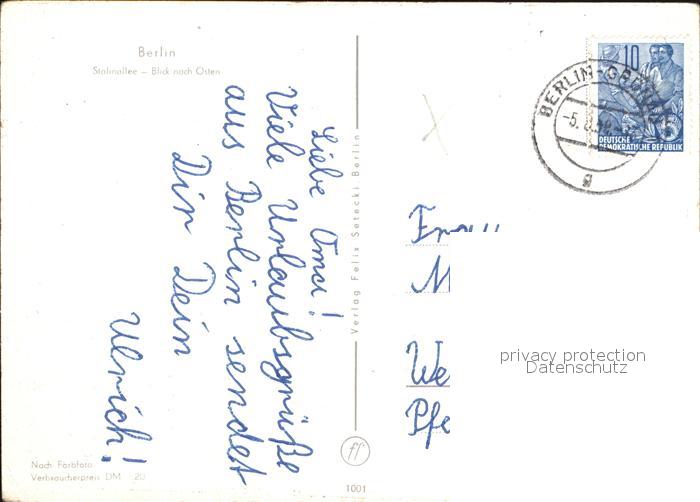 Berlin
Stalinallee – Blick nach Osten
Liebe Omi!
Viele Urlaubsgrüße
aus Berlin sendet
Dir Dein
Ulrich!
Nach Farbfoto
Verbraucherpreis DM 20
Verlag Felix Setecki Berlin
ff
1001
10
DEUTSCHE
DEMOKRATISCHE REPUBLIK
BERLIN-
-5.8.58.
g
Frau
M
We
Pfe
privacy protection
Datenschutz